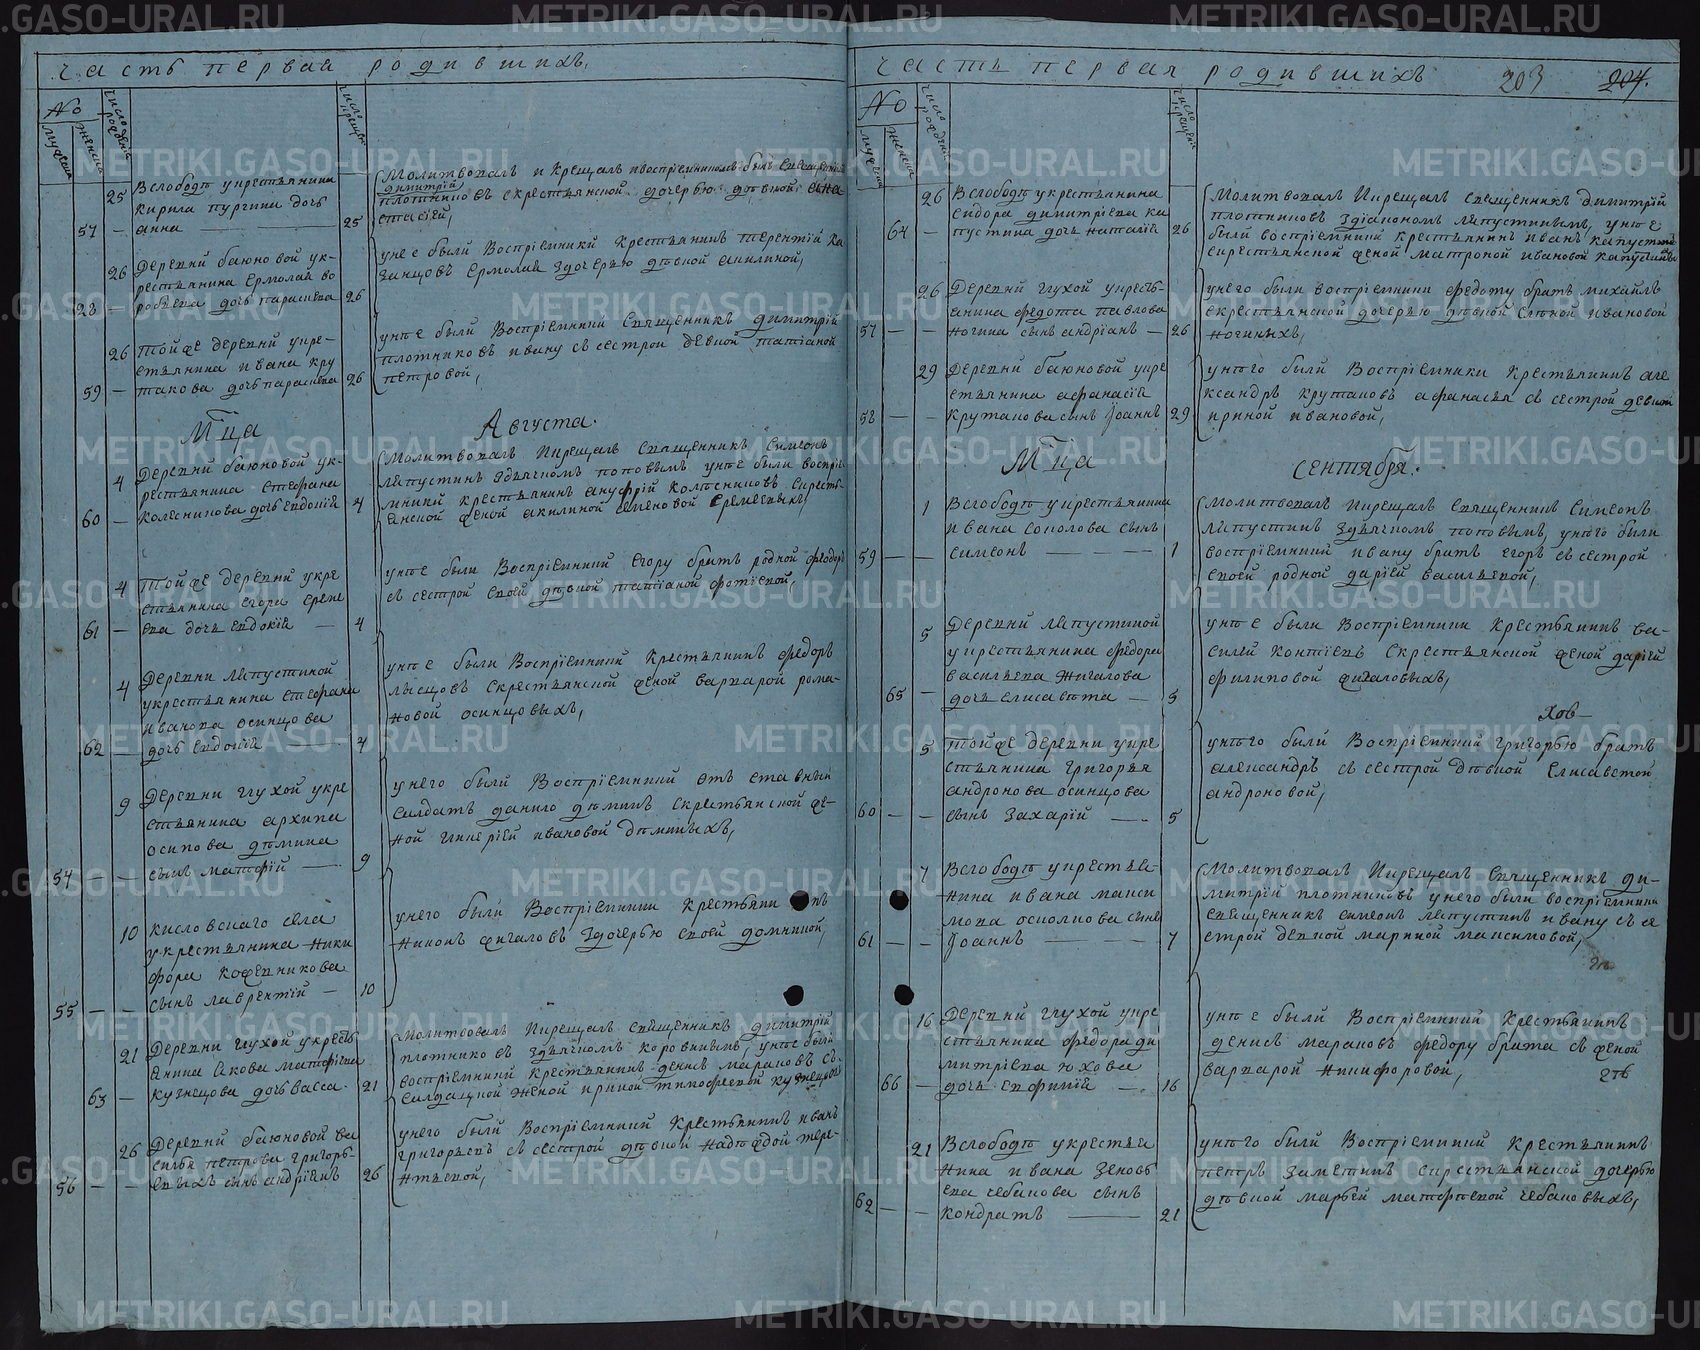 часть первая родившихъ,
No
мужеска
женска
число рожденія
число крещен
25 Вслободѣ укрестьянина
кирила пургина дочь
57 — анна — 25
Молитвовалъ и крещалъ ивоспріемникомъ былъ священникъ
димитрій
плотниковъ скрестьянской дочерью дѣвкой ана
стасіей,
26 Деревни баюновой ук-
рестьянина Ермолая во
28 — робьева дочь парасковья 26
унее были Воспріемники Крестьянинъ терентій ка
занцовъ Ермолая здочерью дѣвкой акилиной,
26 тойже деревни укре-
стьянина ивана кру
59 — такова дочь парасковья 26
унее были Воспріемники Священникъ димитрій
плотниковъ ивану съ сестрой девкой татіаной
петровой,
Мца Августа.
4 Деревни баюновой ук-
рестьянина стефана
60 — колесникова дочь евдокія 4
Молитвовалъ Икрещалъ Священникъ Симеонъ
ляпустинъ здьячкомъ поповымъ унее были воспріе
мники крестьянинъ ануфрій колесниковъ скресть-
янской женой акилиной семеновой Еремеевыхъ,
4 тойже деревни укре
стьянина егора ереме
61 — ева дочь евдокія — 4
унее были Воспріемники Егору братъ родной феодоръ
съ сестрой своей дѣвкой татіаной фотіевой,
4 Деревни ляпустиной
укрестьянина стефана
иванова осинцова
62 — дочь евдокія — 4
унее были Воспріемники Крестьянинъ федоръ
лысцовъ Скрестьянской женой варварой рома-
новой осинцовыхъ,
9 Деревни глухой укре
стьянина архипа
осипова дѣмина
54 — — сынъ матфій — 9
унего были Воспріемники отъ ставный
салдатъ данило дѣминъ Скрестьянской же-
ной гликеріей ивановой дѣминыхъ,
10 кисловскаго села
укрестьянина ники
фора кожевникова
55 — — сынъ лаврентій — 10
унего были Воспріемники Крестьянинъ
никонъ жигаловъ здочерью своей домникой,
21 Деревни глухой укресть
янина іакова матфіева
63 — кузнецова дочь васса. 21
Молитвовалъ Икрещалъ Священникъ димитрій
плотниковъ здьячкомъ коровинымъ, унее были
воспріемники крестьянинъ денисъ марановъ съ
салдацкой женой ириной тимофеевой кузнецовой
26 Деревни баюновой ва
силья петрова григорь-
56 — — евыхъ сынъ андріанъ 26
унего были Воспріемники Крестьянинъ иванъ
григорьевъ съ сестрой дѣвкой надеждой тере-
нтьевой,
часть первая родившихъ 203 204.
No
мужеска
женска
число рожденія
число крещени
26 Вслободѣ укрестьянина
сидора димитріева ка
64 — пустина дочь наталія 26
Молитвовалъ Икрещалъ священникъ димитрій
плотниковъ здіакономъ ляпустинымъ, унее
были воспріемники крестьянинъ иванъ капустинъ
скрестьянской женой матроной ивановой капустиныхъ
26 Деревни глухой укресть-
янина федота павлова
57 — — ногина сынъ андріанъ — 26
унего были воспріемники федоту братъ михаилъ
скрестьянской дочерью дѣвкой еленой ивановой
ногиныхъ,
29 Деревни баюновой укре
стьянина афанасія
58 — — крутакова сынъ Іоаннъ 29
унего были Воспріемники Крестьянинъ але
ксандръ крутаковъ афанасья съ сестрой девкой
ириной ивановой,
Мца сентября.
1 Вслободѣ укрестьянина
ивана соколова сынъ
59 — — симеонъ — — — 1
Молитвовалъ Икрещалъ Священникъ Симеонъ
ляпустинъ здьячкомъ поповымъ, унего были
воспріемники ивану братъ егоръ съ сестрой
своей родной даріей васильевой,
5 Деревни ляпустиной
укрестьянина федора
васильева жигалова
65 — дочь елисавета — 5
унее были Воспріемники Крестьянинъ ва-
силей контіевъ Скрестьянской женой даріей
филиповой жигаловыхъ,
хов—
5 тойже деревни укре
стьянина григорья
андронова осинцова
60 — — сынъ захарій — 5
унего были Воспріемники григорью братъ
александръ съ сестрой дѣвкой Елисаветой
андроновой,
7 Вслободѣ укрестья-
нина ивана макси
мова осколкова сынъ
61 — — Іоаннъ — 7
Молитвовалъ Икрещалъ Священникъ ди-
митрій плотниковъ унего были воспріемники
священникъ симеонъ ляпустинъ ивану съ се
строй девкой мариной максимовой,
16 Деревни глухой укре
стьянина федора ди
митріева юхова
66 — дочь евфимія — 16
унее были Воспріемники Крестьянинъ
денисъ марановъ федору брата съ женой
варварой никифоровой,
21 Вслободѣ укрестья
нина ивана зеновь
ева чебакова сынъ
62 — — кондратъ — 21
унего были Воспріемники Крестьянинъ
петръ заметинъ скрестьянской дочерью
дѣвкой марьей матфѣевой чебаковыхъ,
METRIKI.GASO-URAL.RU